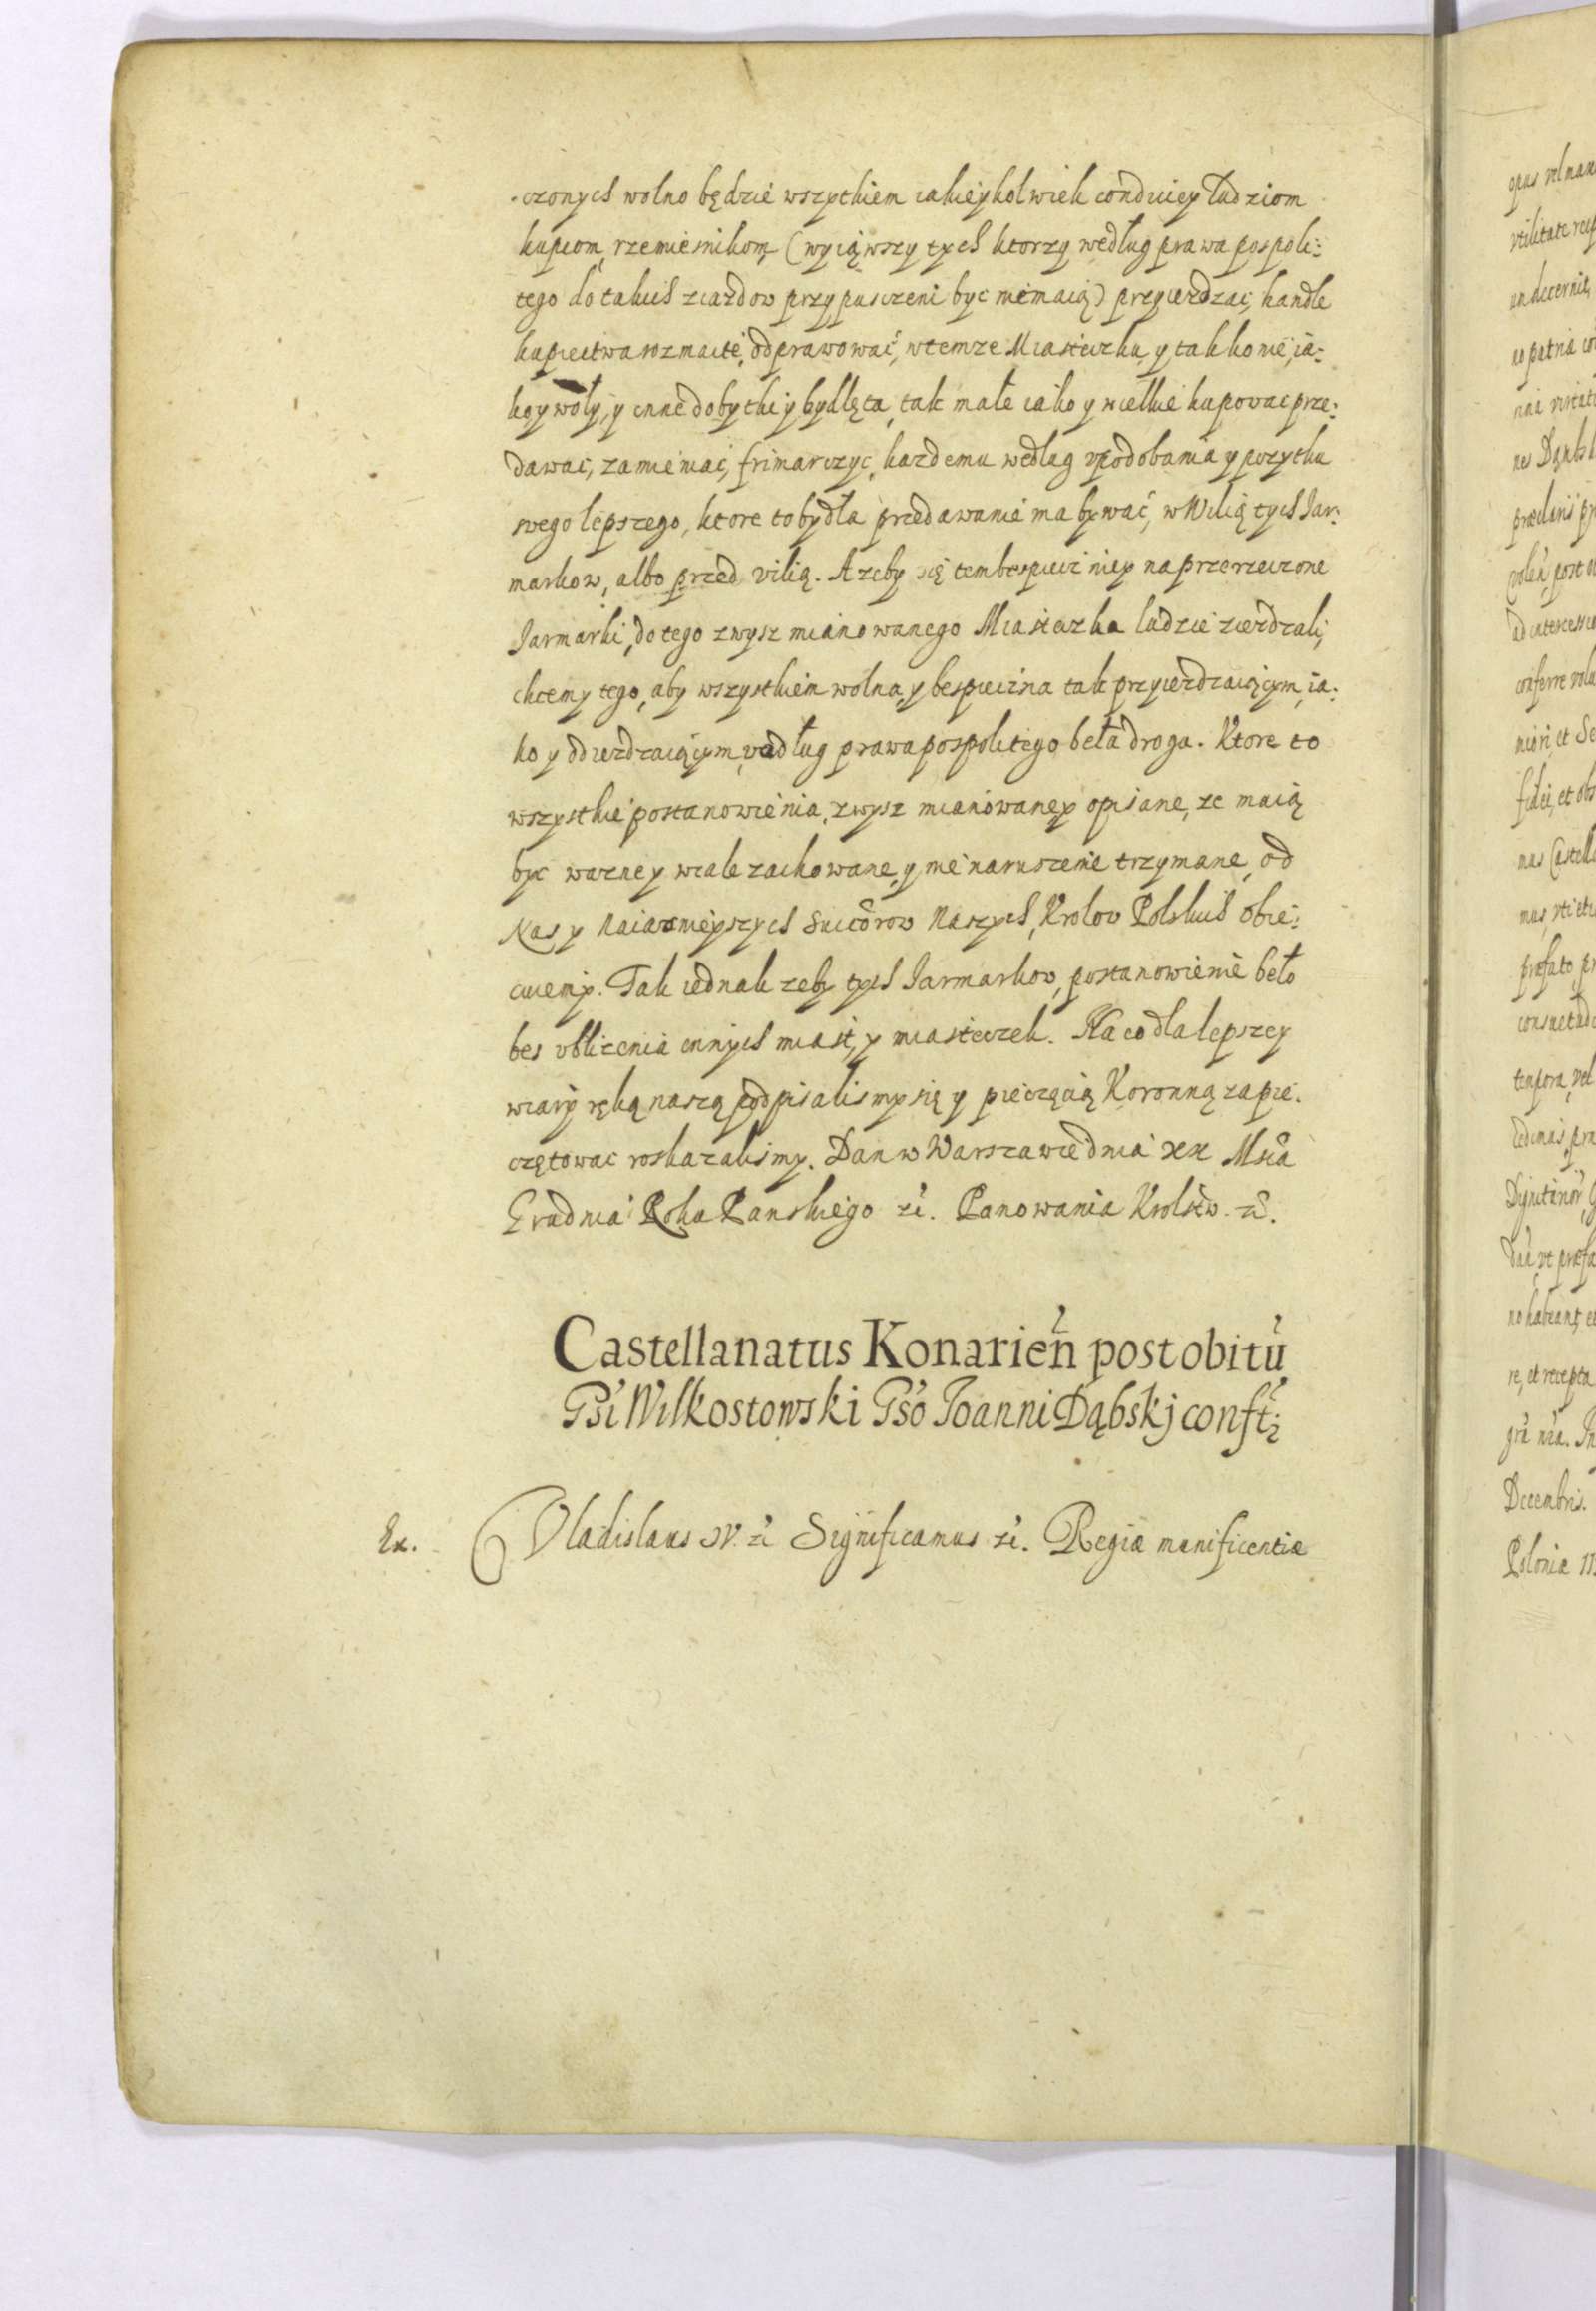 -czonych wolno będzie wszytkiem iakieykolwiek condiciey Ludziom
kupcom, rzemiesnikom, (wyiąwszy tych ktorzy według prawa pospoli:
tego do takich ziazdow przypusczeni byc niemaią) przyiezdzac, handle
kupiectwa rozmaite, odprawować, wtemze Miasteczku, y tak konie, ia:
ko y woły, y inne dobytki y bydlęta, tak małe iako y wielkie kupowac prze:
dawac, zamieniac, frimarczyc, kazdemu wedlug upodobania y pozytku
swego lepszego, ktore to bydła przedawanie ma bywać, w Wilią tych Jar:
markow, albo przed vilią. A zeby się tembespieczniey na przerzeczone
Jarmarki, do tego zwysz mianowanego Miasteczka ludzie ziezdzali,
chcemy tego, aby wszystkiem wolna, y bespieczna tak przyiezdzaiącym, ia:
ko y odiezdzaiącym, według prawa pospolitego beła droga. Ktore to
wszystkie postanowienia, zwysz mianowane, y opisane, ze maią
byc wazne y wcale zachowane, y nienaruszenie trzymane, od
Nas y Naiasnieyszych Succorow Naszych, Krolow Polskich obie:
cuiemy. Tak iednak zeby tych Jarmarkow, postanowienie beło
bes ubliżenia innych miast, y miasteczek. Na co dla lepszey
wiary ręką naszą podpisalismy się y pieczęcią Koronną zapie:
czętowac roskazalismy. Dan w Warszawie dnia XX Msca
Grudnia Roku Panskiego etc. Panowania Krolestw. etc.
Castellanatus Konarien̄ post obitū
Gsi Wilkostowski Gso Joanni Dąbskj confr̄
Ex. Vladislaus IV. etc Significamus etc. Regiæ munificentiæ
opus vel
undecernit,
præclaris
post
conferre
fidei, et
præfato
tempora, vel
ut præfa
no habeant,
re, et recepta
Decembris.
Poloniæ